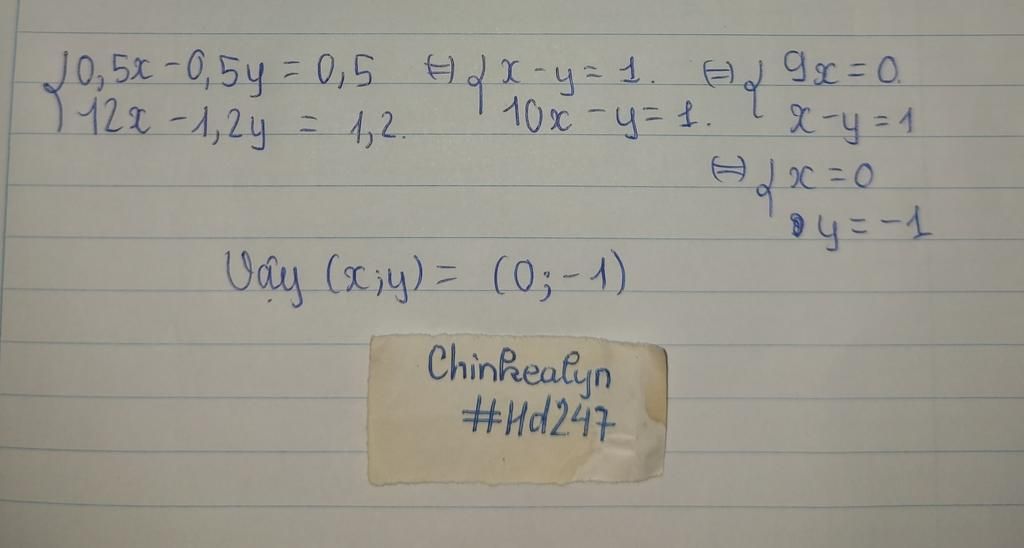 {0,5x - 0,5y = 0,5 ⇔ {x - y = 1. ⇔ {9x = 0.
12x - 1,2y = 1,2. 10x - y = 1. x - y = 1
⇔ {x = 0
y = -1
Vậy (x;y) = (0;-1)
Chinkealyn
#Hd247